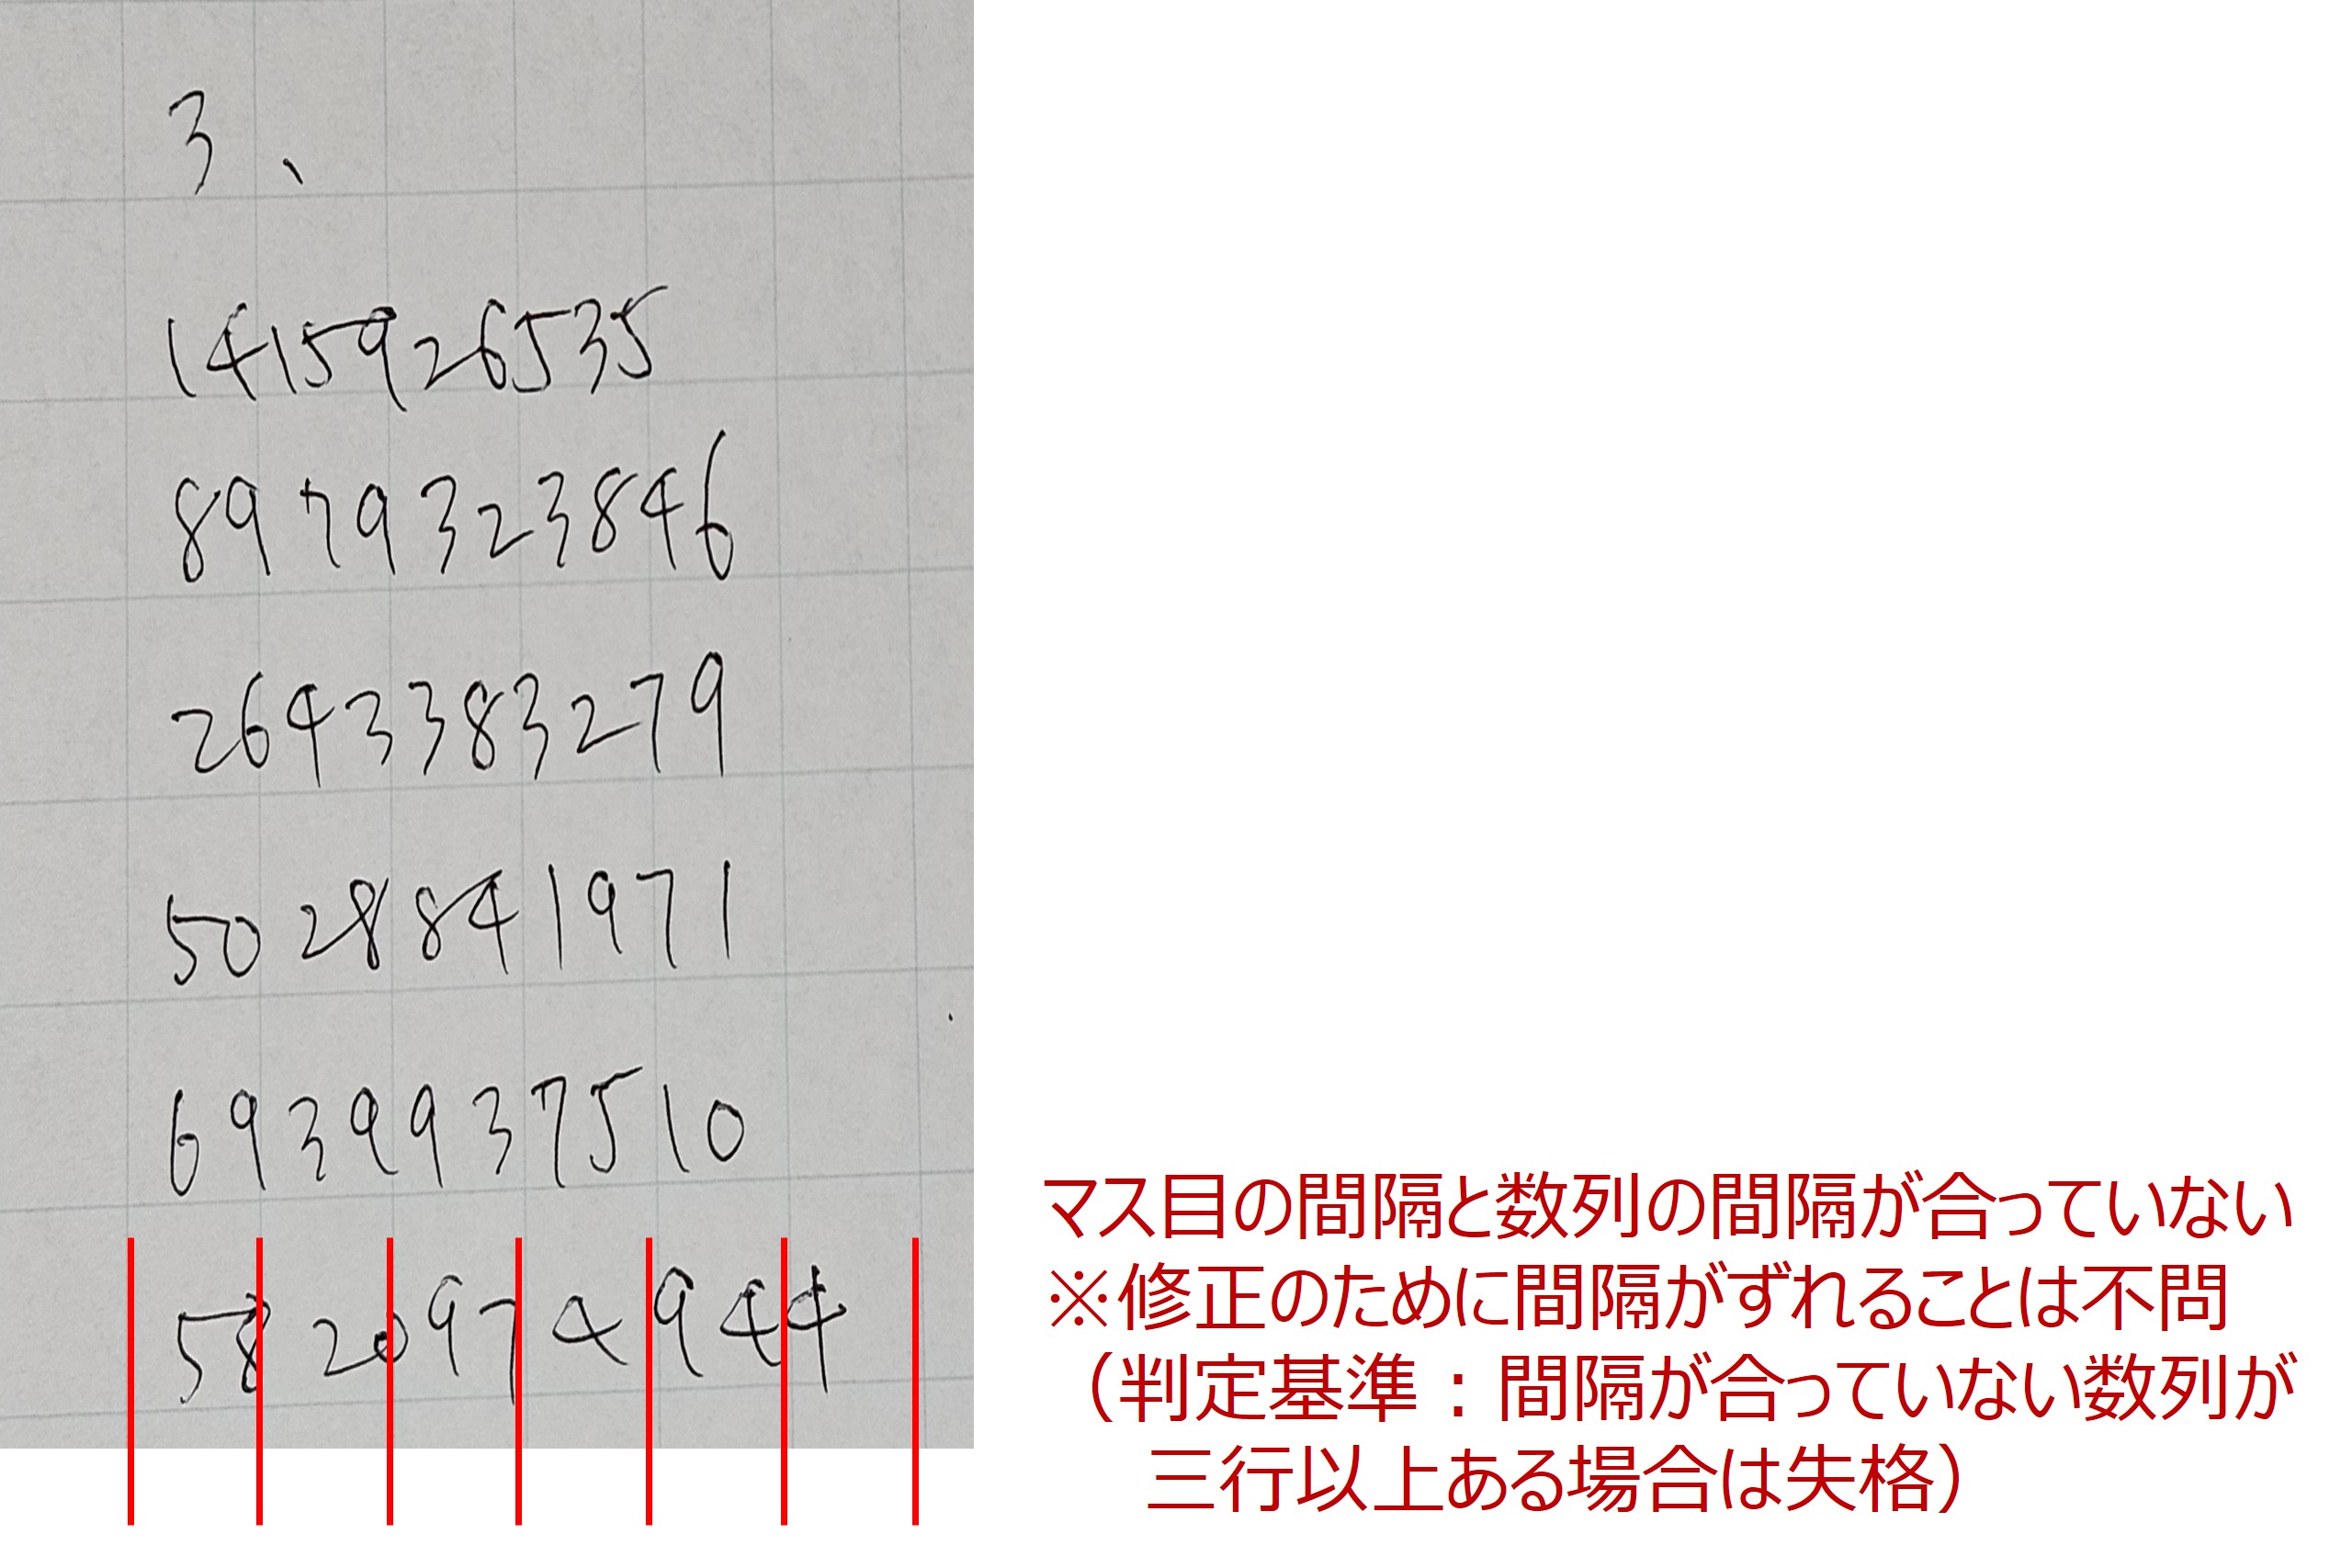 3、
1415926535
8979323846
2643383279
5028841971
6939937510
5820974944
マス目の間隔と数列の間隔が合っていない
※修正のために間隔がずれることは不問
（判定基準：間隔が合っていない数列が
三行以上ある場合は失格）